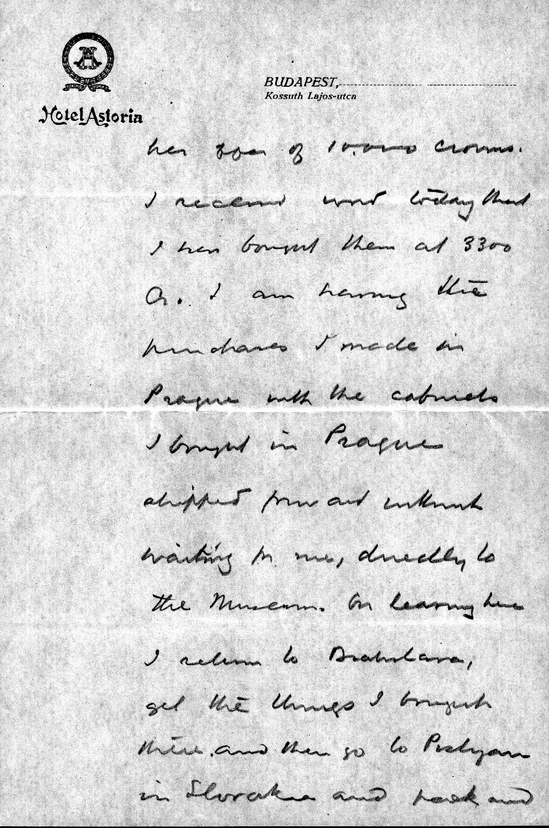 Hotel Astoria
BUDAPEST,
Kossuth Lajos-utca
of 10.000 crowns.
I received word today that
I have bought them at 3300
I am having the
purchases I made in
Prague with the cabinets
I bought in Prague
shipped forward without
waiting for me, directly to
the Museum. On leaving here
I return to Bratislava,
get the things I bought
there, and then go to Pistyan
in Slovakia and pack and